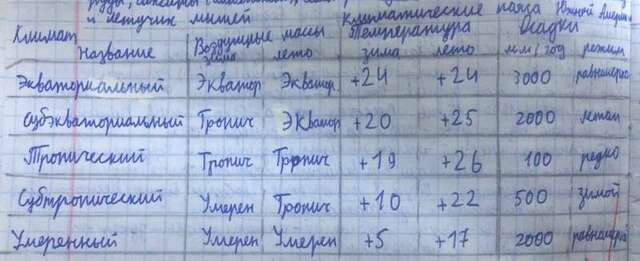 и летучих мышей
Климатические пояса Южной Америки
Климат Воздушные массы Температура Осадки
Название зима лето зима лето мм/год режим
Экваториальный Экватор Экватор. +24 +24 3000 равномерно
Субэкваториальный Тропич Экватор +20 +25 2000 летом
Тропический Тропич Тропич +19 +26 100 редко
Субтропический Умерен Тропич +10 +22 500 зимой
Умеренный Умерен Умерен +5 +17 2000 равномерно